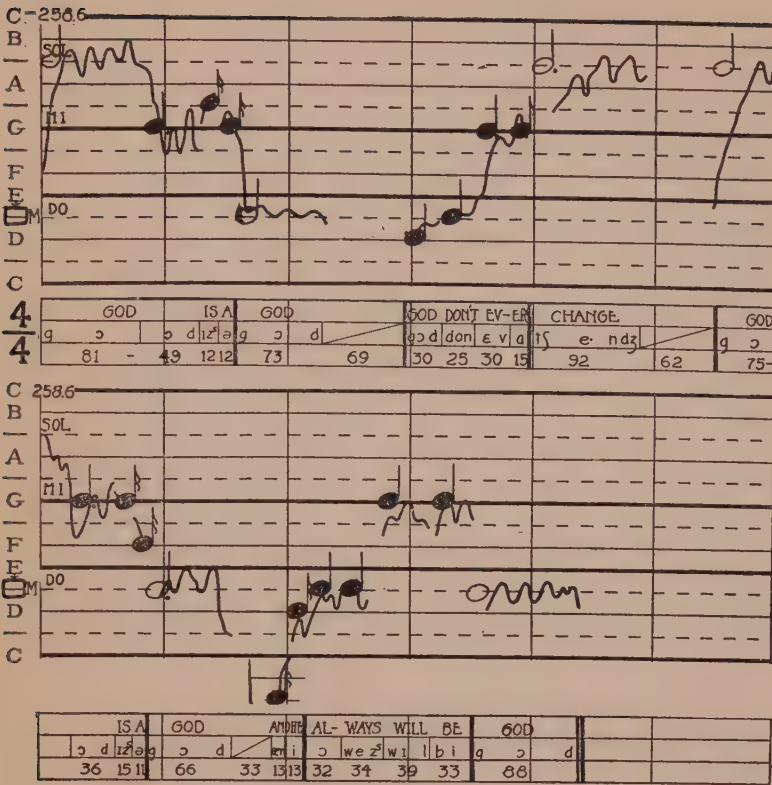 C-258.6
B
SOL
A
G MI
F
E
M DO
D
C
4/4
GOD IS A GOD GOD DON'T EV-ER CHANGE GOD
g ɔ ɔ d ɪzˢ ə g ɔ d gɔd don ɛ v ɑ tʃ e· ndʒ g ɔ
81 - 49 12 12 73 69 30 25 30 15 92 62 75-
C 258.6
B
SOL
A
G MI
F
E
M DO
D
C
IS A GOD AND HE AL- WAYS WILL BE GOD
ɔ d ɪzˢ ə g ɔ d i ɔ we zˢ wɪ l b i g ɔ d
36 15 11 66 33 13 13 32 34 39 33 88